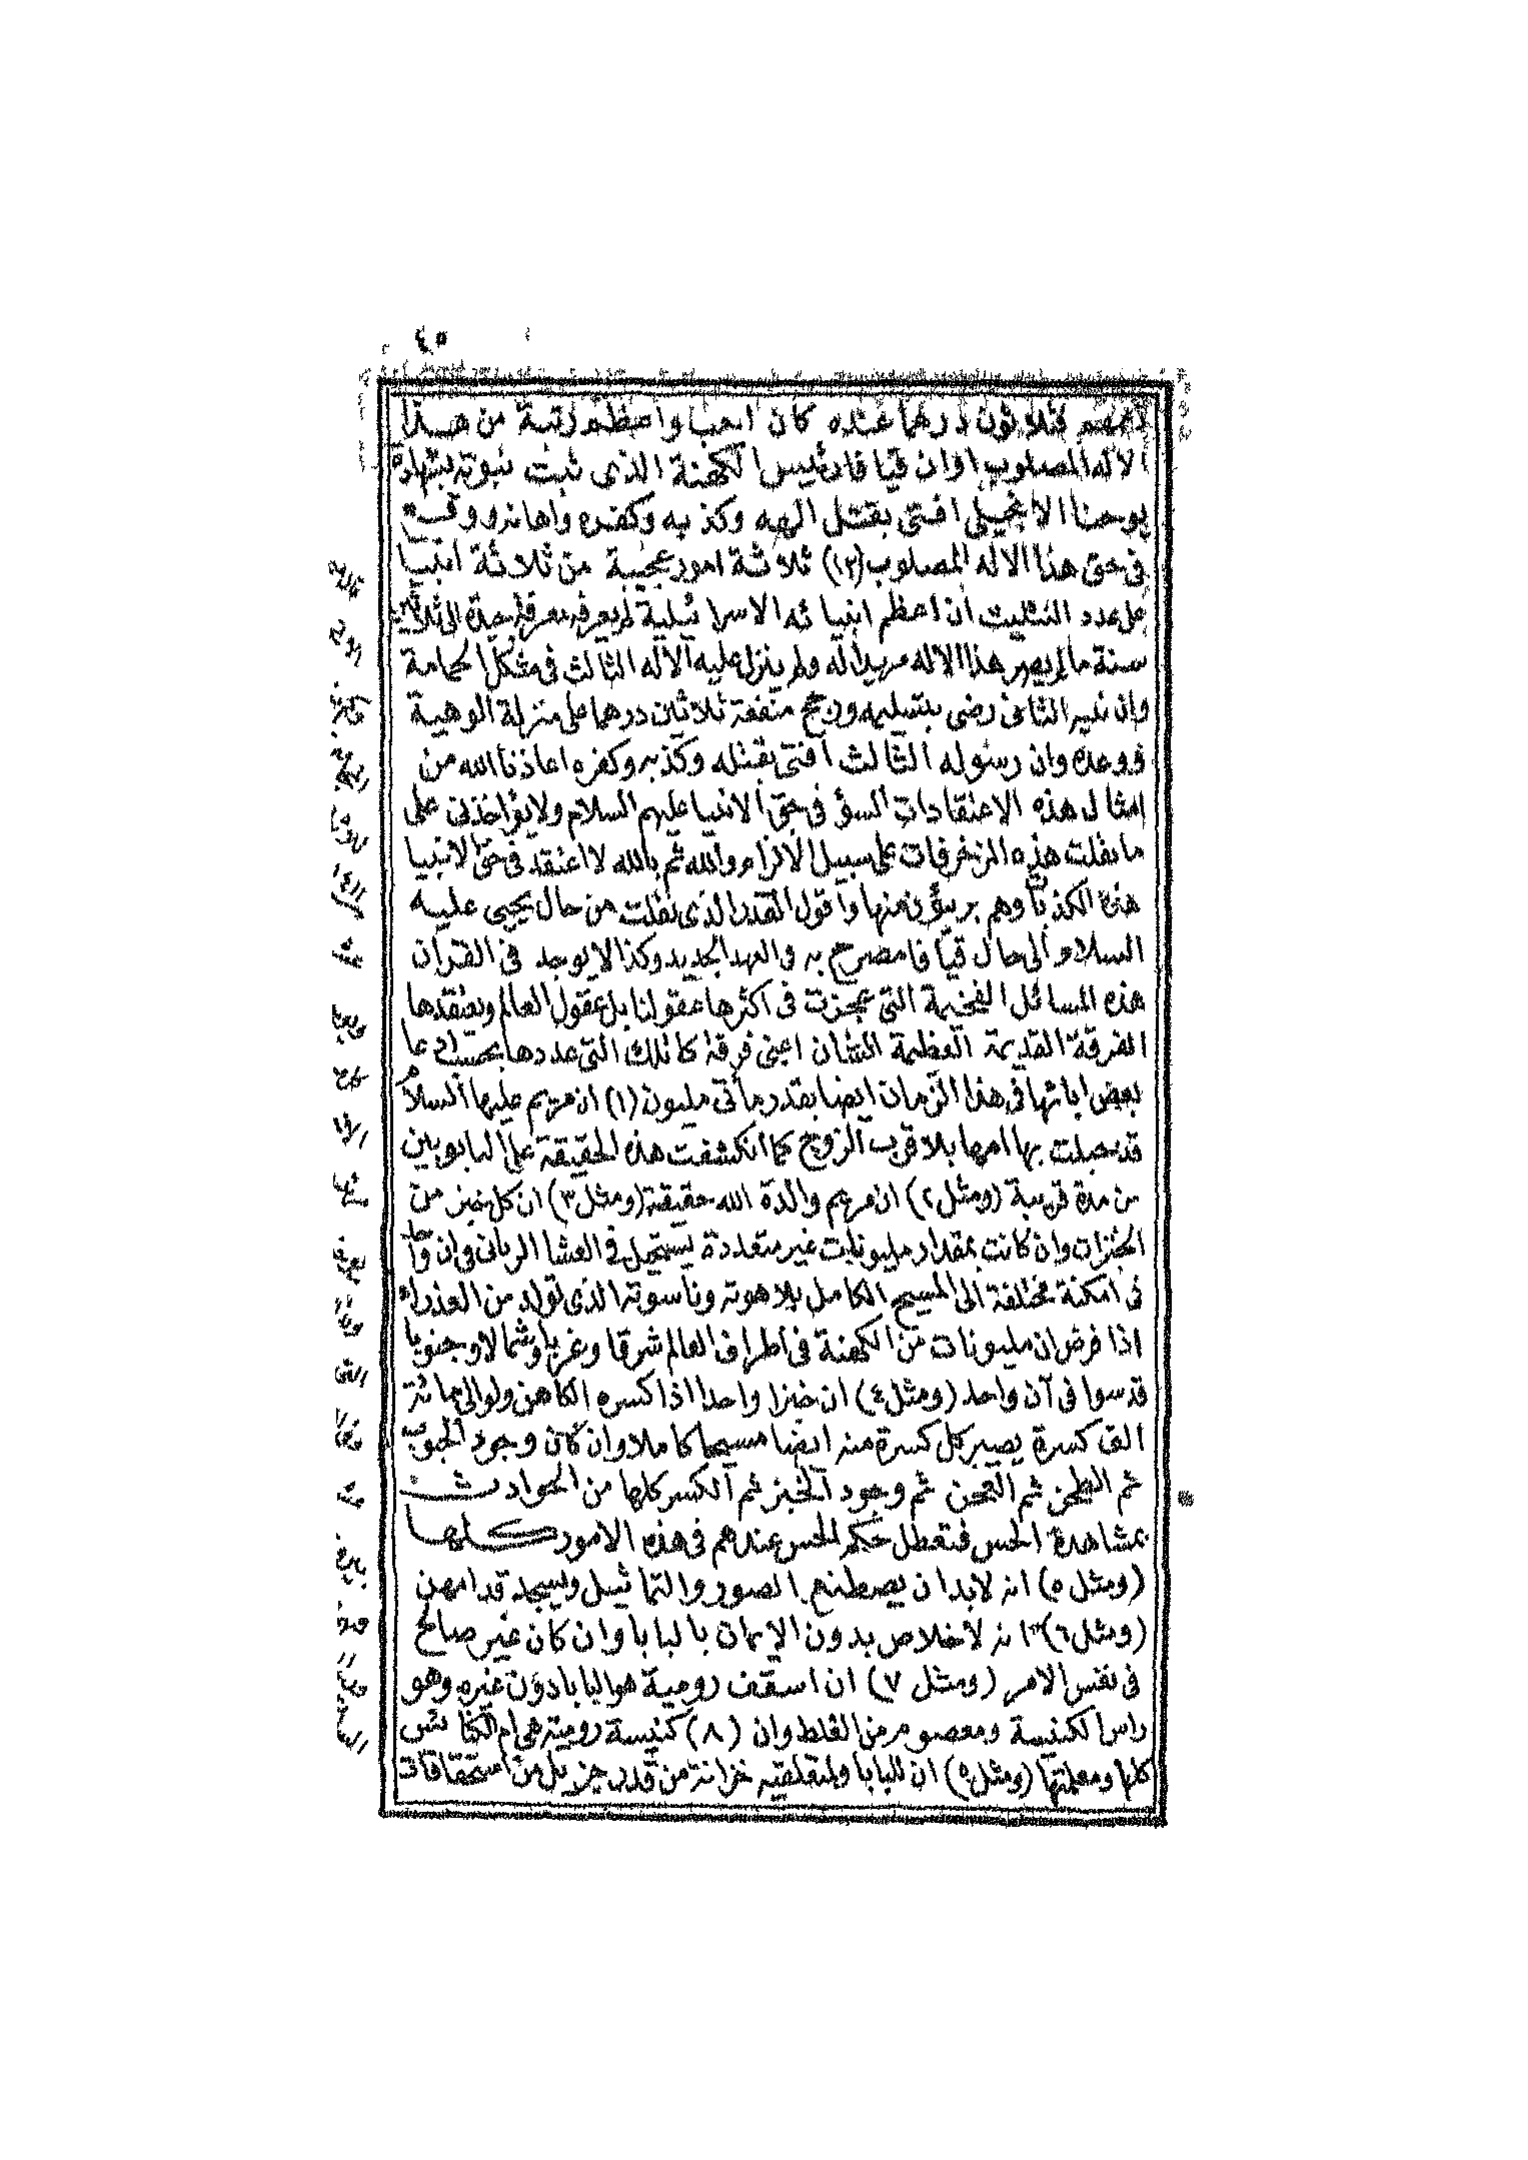 ٤٥
فثلاثون درهما عنده كان احب واعظم رتبة من هذا
الاله المصلوب وان قيافا رئيس الكهنة الذى ثبت نبوته بشهادة
يوحنا الانجيلى افتى بقتل الهه وكذبه وكفره واهانه ووقع
فى حق هذا الاله المصلوب (١٢) ثلاثة امور عجيبة من ثلاثة انبيا
على عدد التثليث ان اعظم انبيائه الاسرائيلية لم يعرفه معرفة جيدة الى ثلاثين
سنة مالم يصر هذا الاله مريدا له ولم ينزل عليه الاله الثالث فى شكل الحمامة
وان نبيه الثانى رضى بتسليمه ورجح منفعة ثلاثين درهما على منزلة الوهية
ووعده وان رسوله الثالث افتى بقتله وكذبه وكفره اعاذنا الله من
امثال هذه الاعتقادات السؤ فى حق الانبيا عليهم السلام ولا يؤاخذنى على
ما نقلت هذه المزخرفات على سبيل الالزام والله ثم بالله لا اعتقد فى حق الانبيا
هذه الكذبات وهم بريؤن منها واقول القدر الذى نقلت من حال يحيى عليه
السلام الى حال قيافا مصرح به فى العهد الجديد وكذا لا يوجد فى القران
هذه المسائل الفخيمة التى عجزت فى اكثرها عقولنا بل عقول العالم ويعتقدها
الفرقة القديمة العظيمة الشان اعنى فرقة كاتلك التى عددها بحسب ادعا
بعض ابائها فى هذا الزمان ايضا بقدر مأتى مليون (١) ان مريم عليها السلام
قد حبلت بها امها بلا قرب الزوج كما انكشفت هذه الحقيقة على البابويين
من مدة قريبة (ومثل ٢) ان مريم والدة الله حقيقة (ومثل ٣) ان كل خبز من
الخبزات وان كانت بمقدار مليونات غير متعددة يستحيل فى العشا الربانى فى ان واحد
فى امكنة مختلفة الى المسيح الكامل بلاهوته وناسوته الذى تولد من العذراء
اذا فرض ان مليونات من الكهنة فى اطراف العالم شرقا وغربا وشمالا وجنوبا
قدسوا فى آن واحد (ومثل ٤) ان خبزا واحدا اذا كسره الكاهن ولو الى مائة
الف كسرة يصير كل كسرة منه ايضا مسيحا كاملا وان كان وجود الحبوب
ثم الطحن ثم العجن ثم وجود الخبز ثم الكسر كلها من الحوادث
بمشاهدة الحس فتعطل حكم الحس عندهم فى هذه الامور كلها
(ومثل ٥) انه لابد ان يصطنع الصور والتماثيل ويسجد قدامهن
(ومثل ٦) انه لاخلاص بدون الايمان بالبابا وان كان غير صالح
فى نفس الامر (ومثل ٧) ان اسقف رومية هو البابا دون غيره وهو
راس الكنيسة ومعصوم من الغلط وان (٨) كنيسة رومية هى ام الكنائس
كلها ومعلمتها (ومثل ٩) ان للبابا ولمتعلقيه خزانة من قدر جزيل من استحقاقات